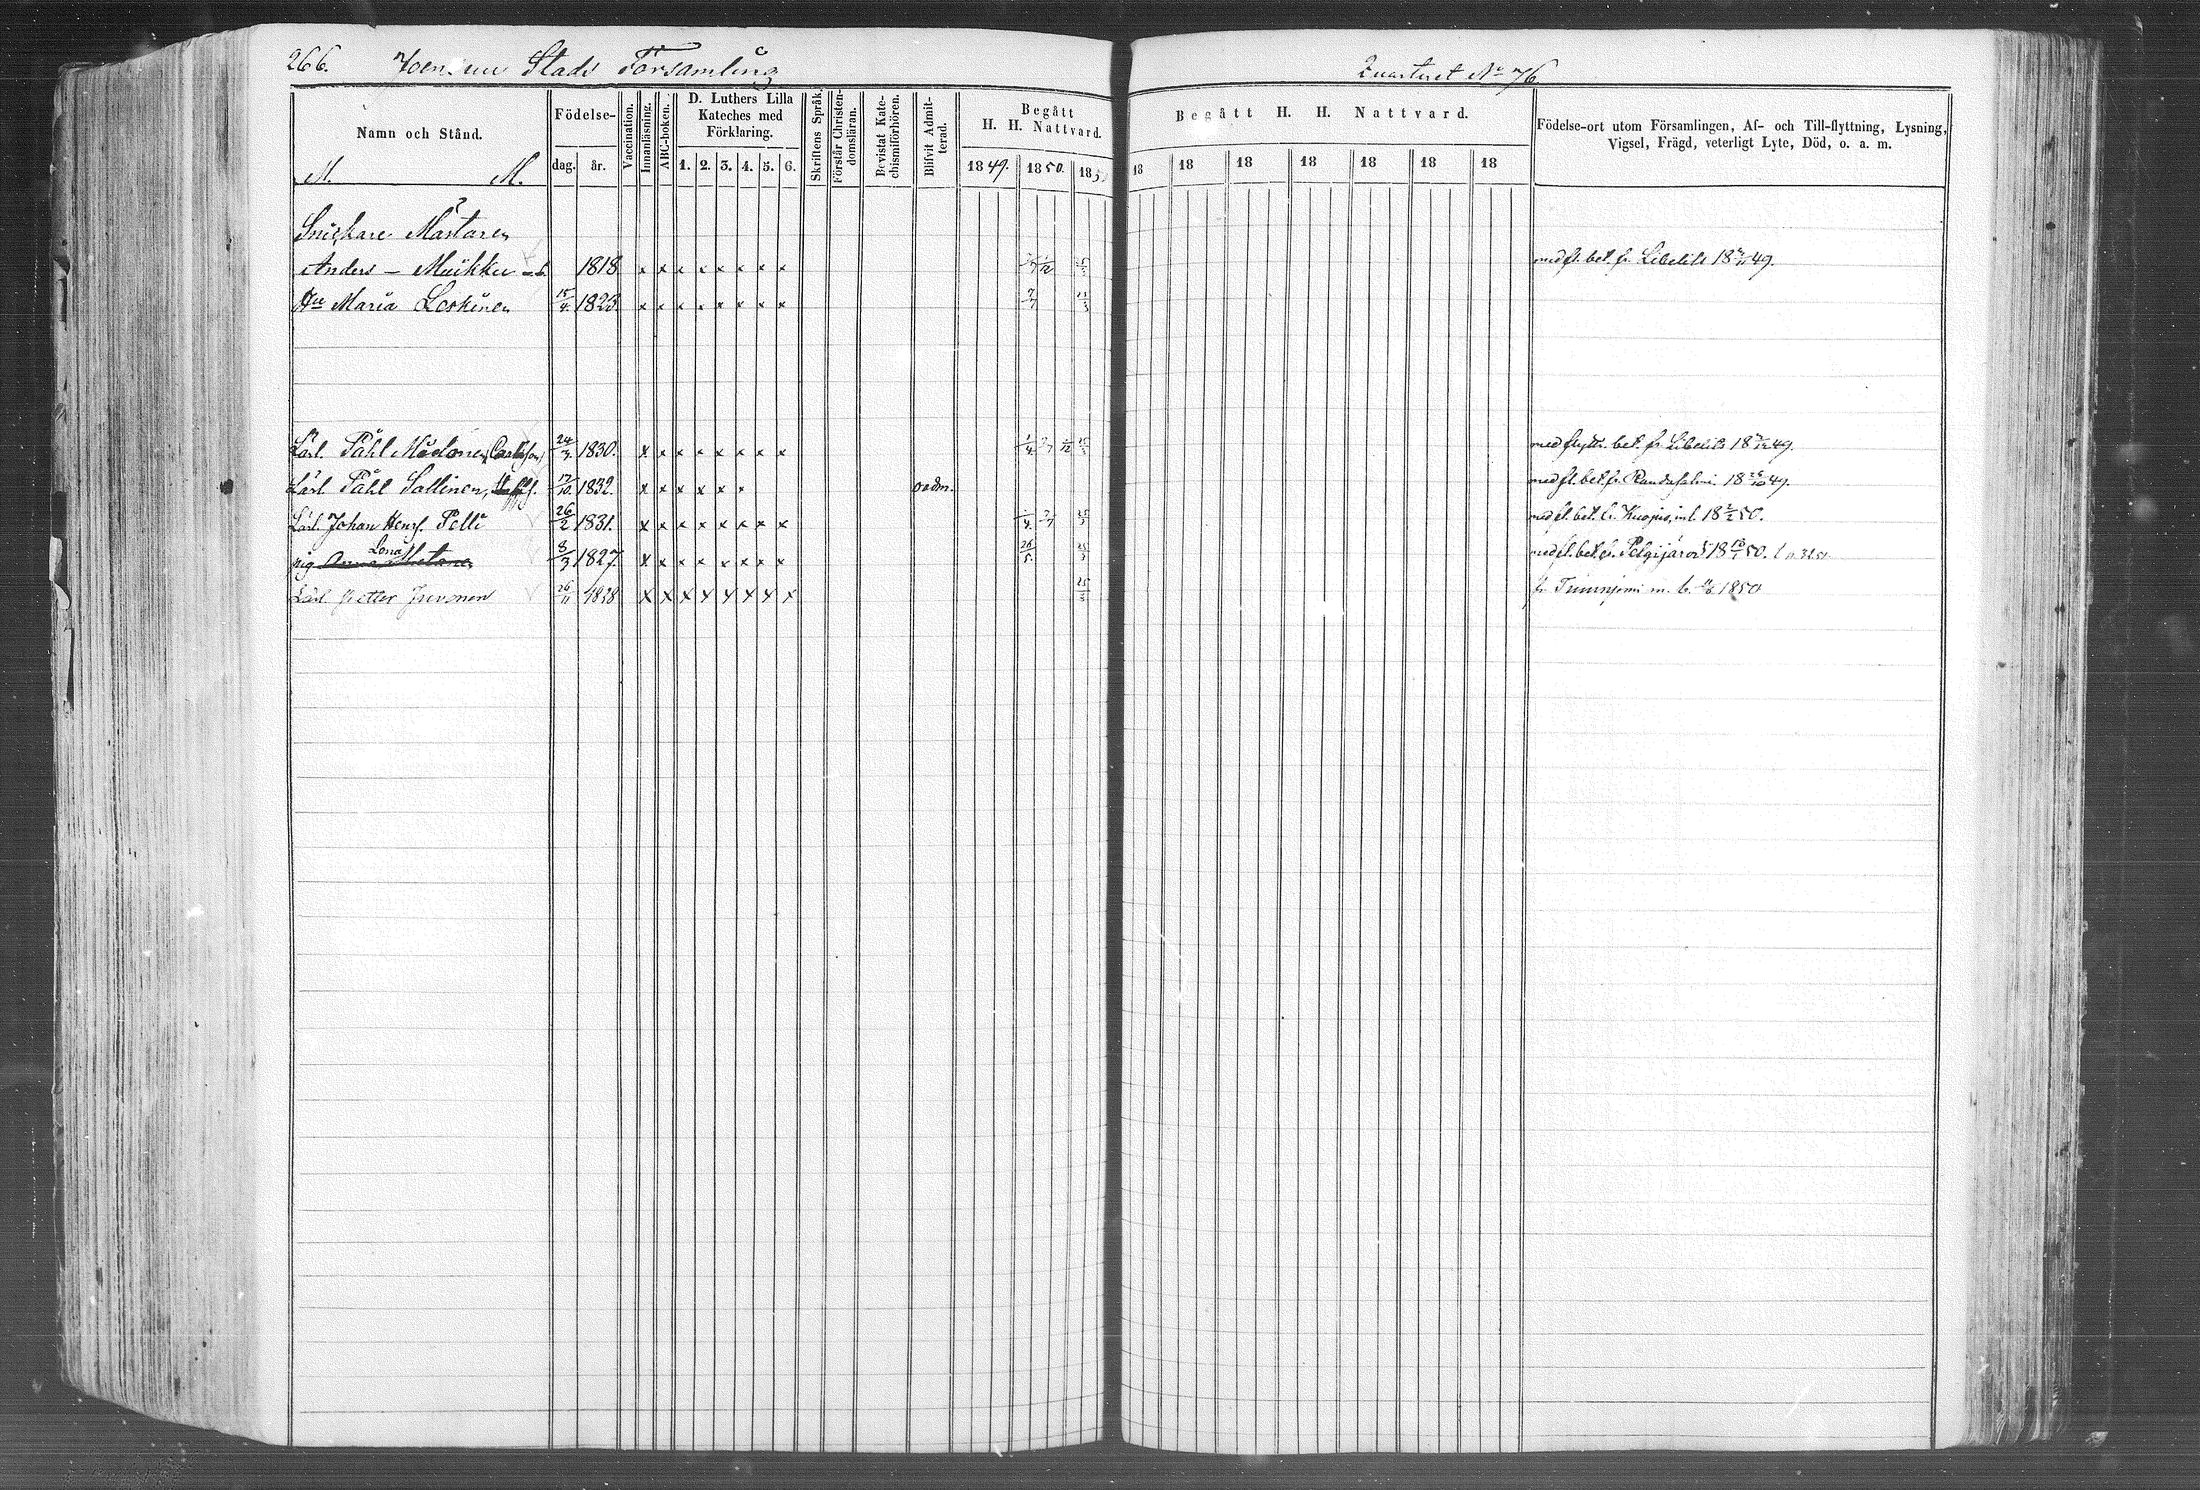 266. Joensuu Stads Församling
Quarteret No 76
Namn och Stånd.
Födelse-
dag. år.
Vaccination.
Innanläsning.
ABC-boken.
D. Luthers Lilla
Kateches med
Förklaring.
1. 2. 3. 4. 5. 6.
Skriftens Språk.
Förstår Christen-
domsläran.
Bevistat Kate-
chismiförhören.
Blifvit Admit-
terad.
Begått
H. H. Nattvard.
1849. 1850. 185
Begått H. H. Nattvard.
18 18 18 18 18 18 18
Födelse-ort utom Församlingen, Af- och Till-flyttning, Lysning,
Vigsel, Frägd, veterligt Lyte, Död, o. a. m.
M.
Snickare Mästaren
Anders Muikku 1818 x x x x x x x x med fl. bet. fr. Libelits 18 49.
Hu Maria Leskinen 15/4 1823. x x x x x x x x 7/7
Lärl. Påhl Mustonen (Carlsson) 24/7 1830. x x x x x x x x med flytt. bet. fr. Libelits 18 49.
Lärl Påhl Sallinen, 17/10 1832. x x x x x x oadm. med fl. bet. fr. Randasalmi 18 26/10 49.
Lärl. Johan Henr. Pelli 26/2 1831. x x x x x x x x 25/3 med fl. bet. fr. Kuopio, inl. 18 50.
pig Anna Lena 8/3 1827. x x x x x x x x 26/5. 25/3 med fl. bet. fr. Pelgijärvi 18 50.
Lärl Petter Juvonen 26/11 1828 x x x x x x x x 25/3 fr Tuusniemi m. b. 1850